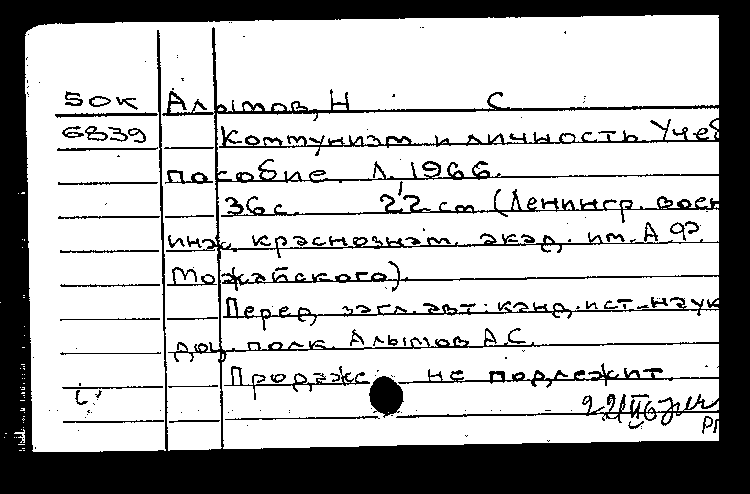 50к Алымов, Н С
6339 Коммунизм и личность. Учеб
пособие. Л., 1966.
36 с. 22 см (Ленингр. воен
инж. краснознам. акад. им. А Ф.
Можайского).
Перед загл. авт: канд. ист. наук
доц. полк. Алымов А.С.
Продаже не подлежит.